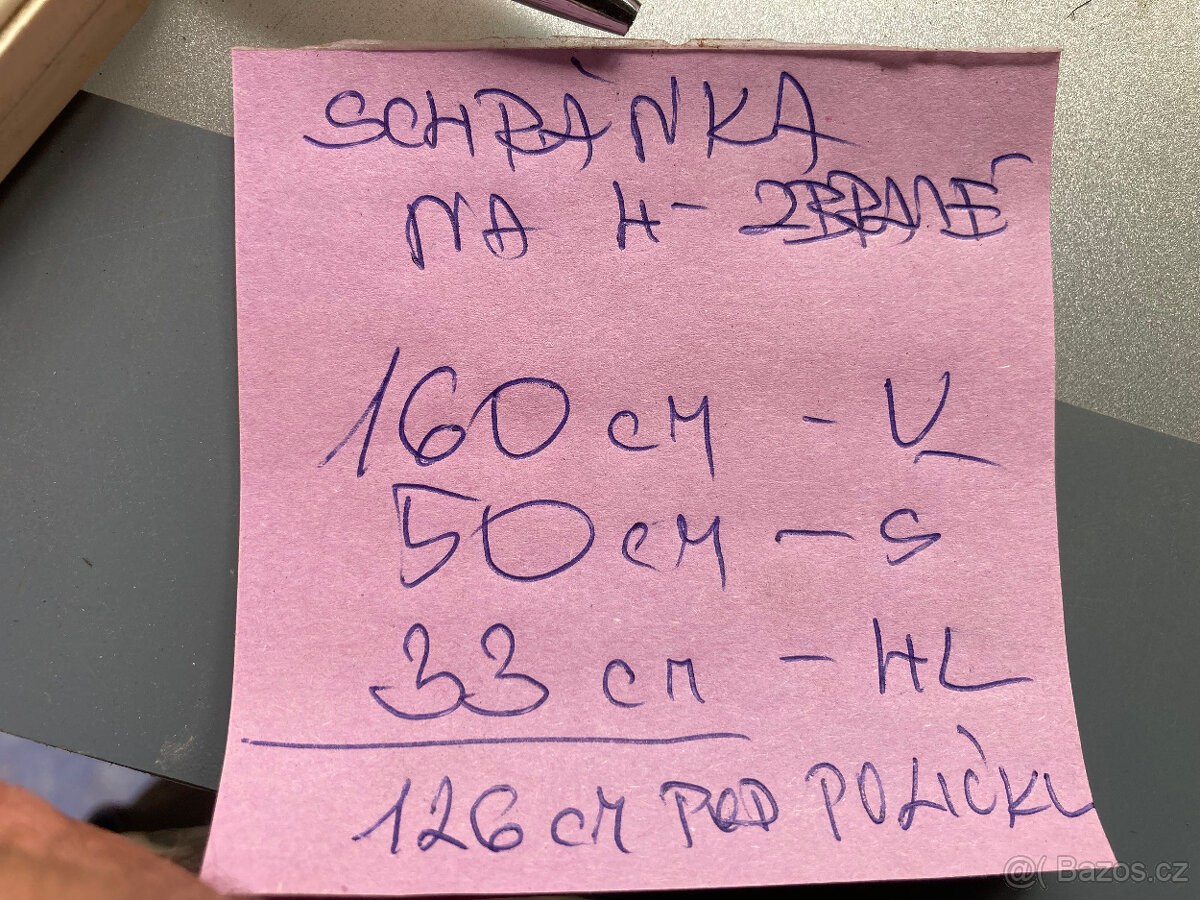 SCHRÁNKA
NA 4- ZBRANĚ
160 cm - V
50 cm - S
33 cm - HL
126 cm POD POLIČKU
@( Bazos.cz